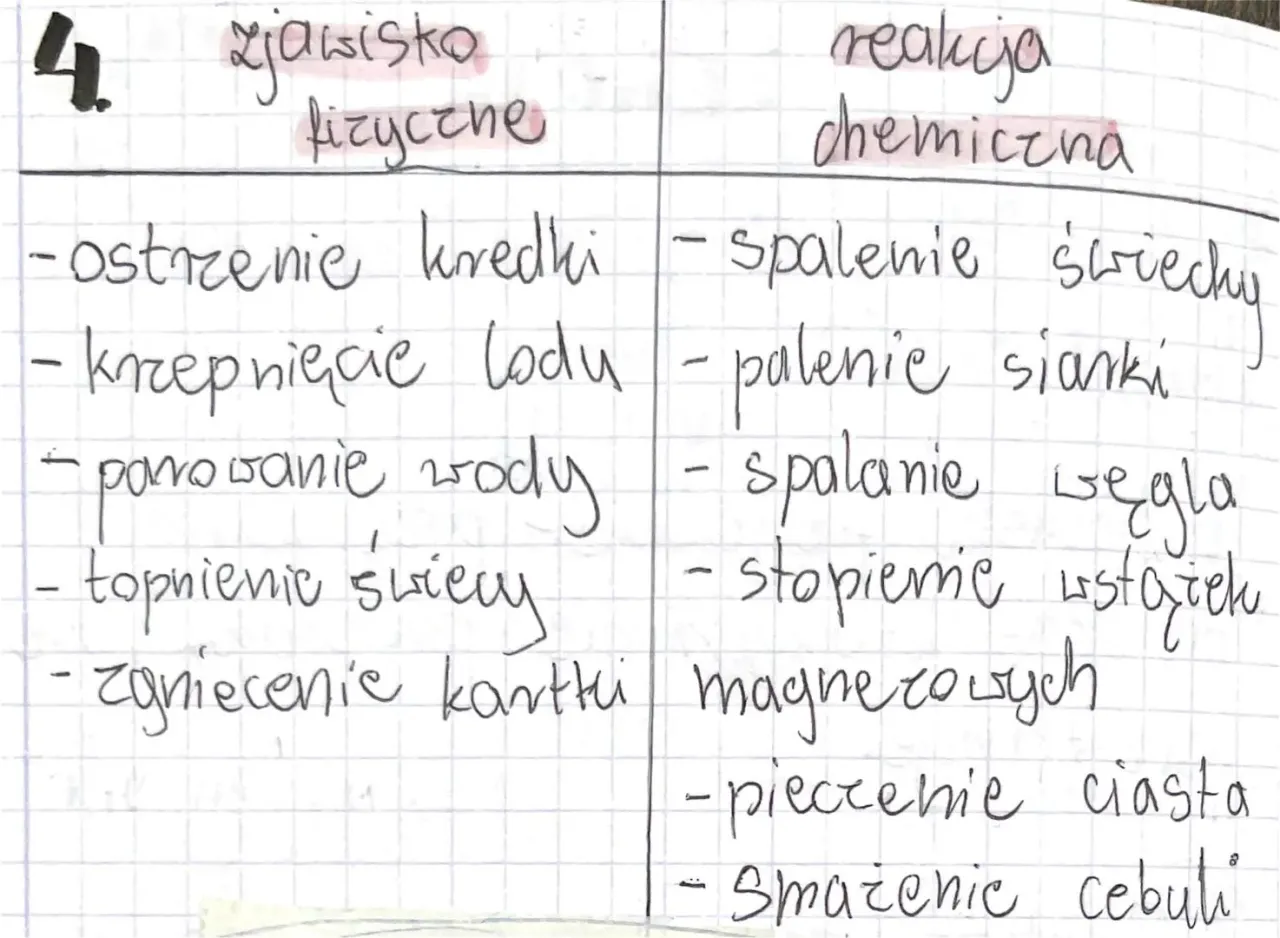 4. zjawisko
fizyczne
- ostrzenie kredki
- krzepnięcie lodu
- parowanie wody
- topnienie świecy
- zgniecenie kartki
reakcja
chemiczna
- spalenie świeczky
- palenie siarki
- spalanie węgla
- stopienie wstążek
magnezowych
- pieczenie ciasta
- smażenie cebuli